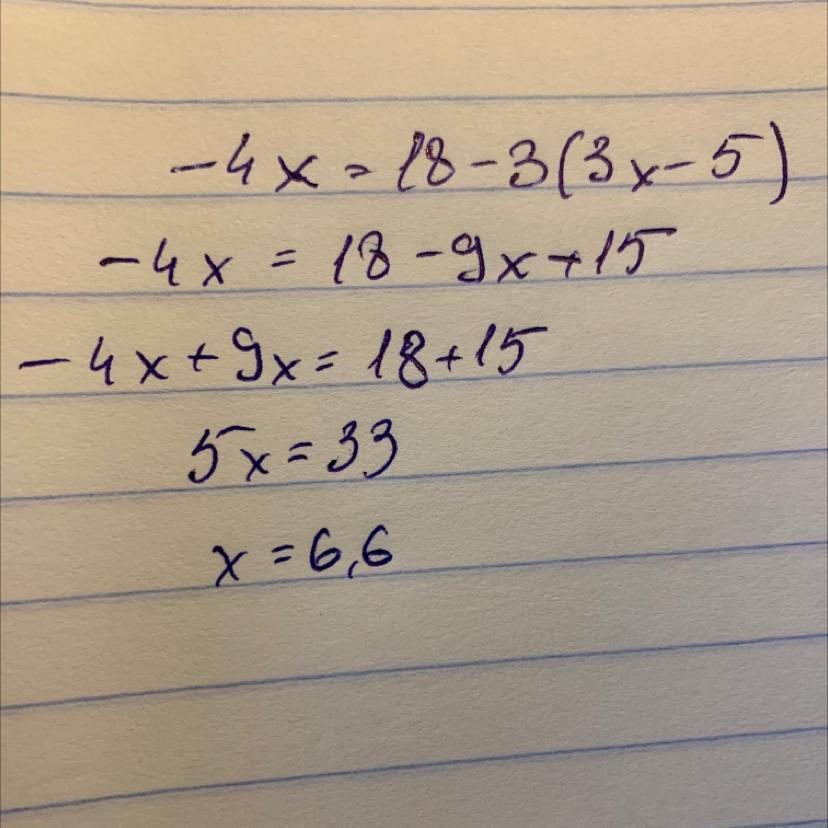 -4x = 18-3(3x-5)
-4x = 18-9x+15
-4x+9x=18+15
5x=33
x=6,6